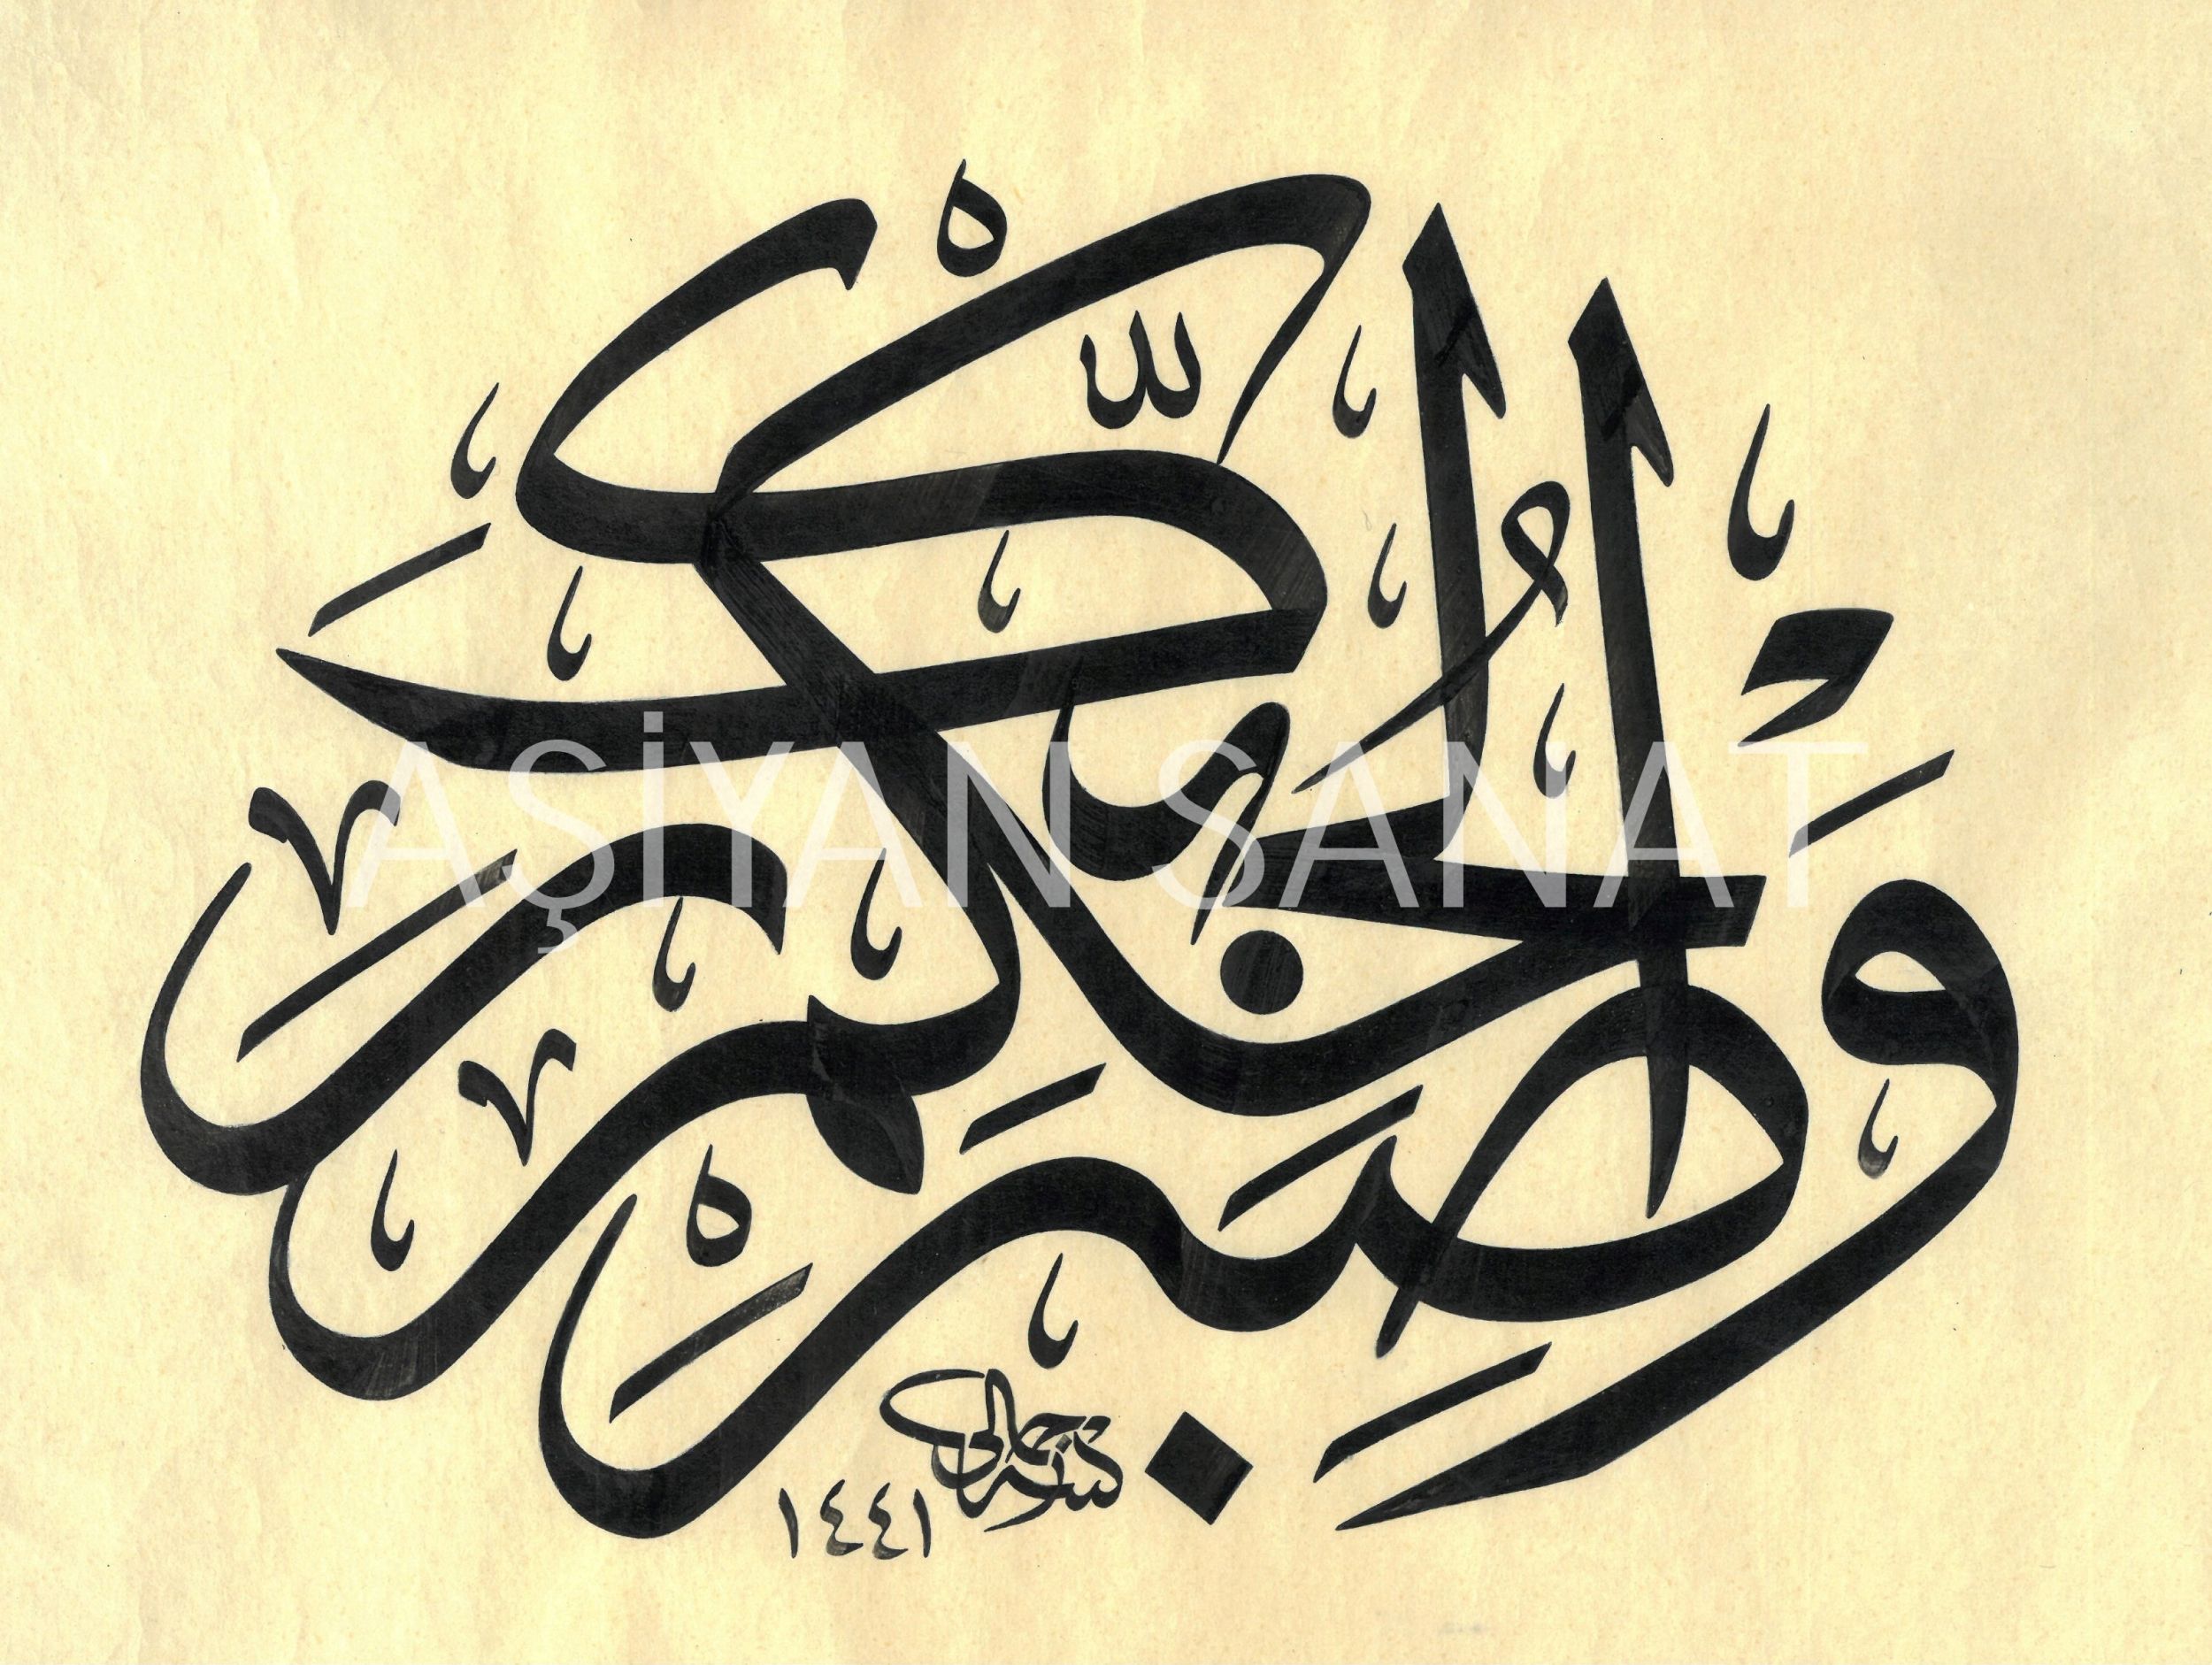 وَاصْبِرْ لِحُكْمِ رَبِّكَ
AŞİYAN SANAT
١٤٤١